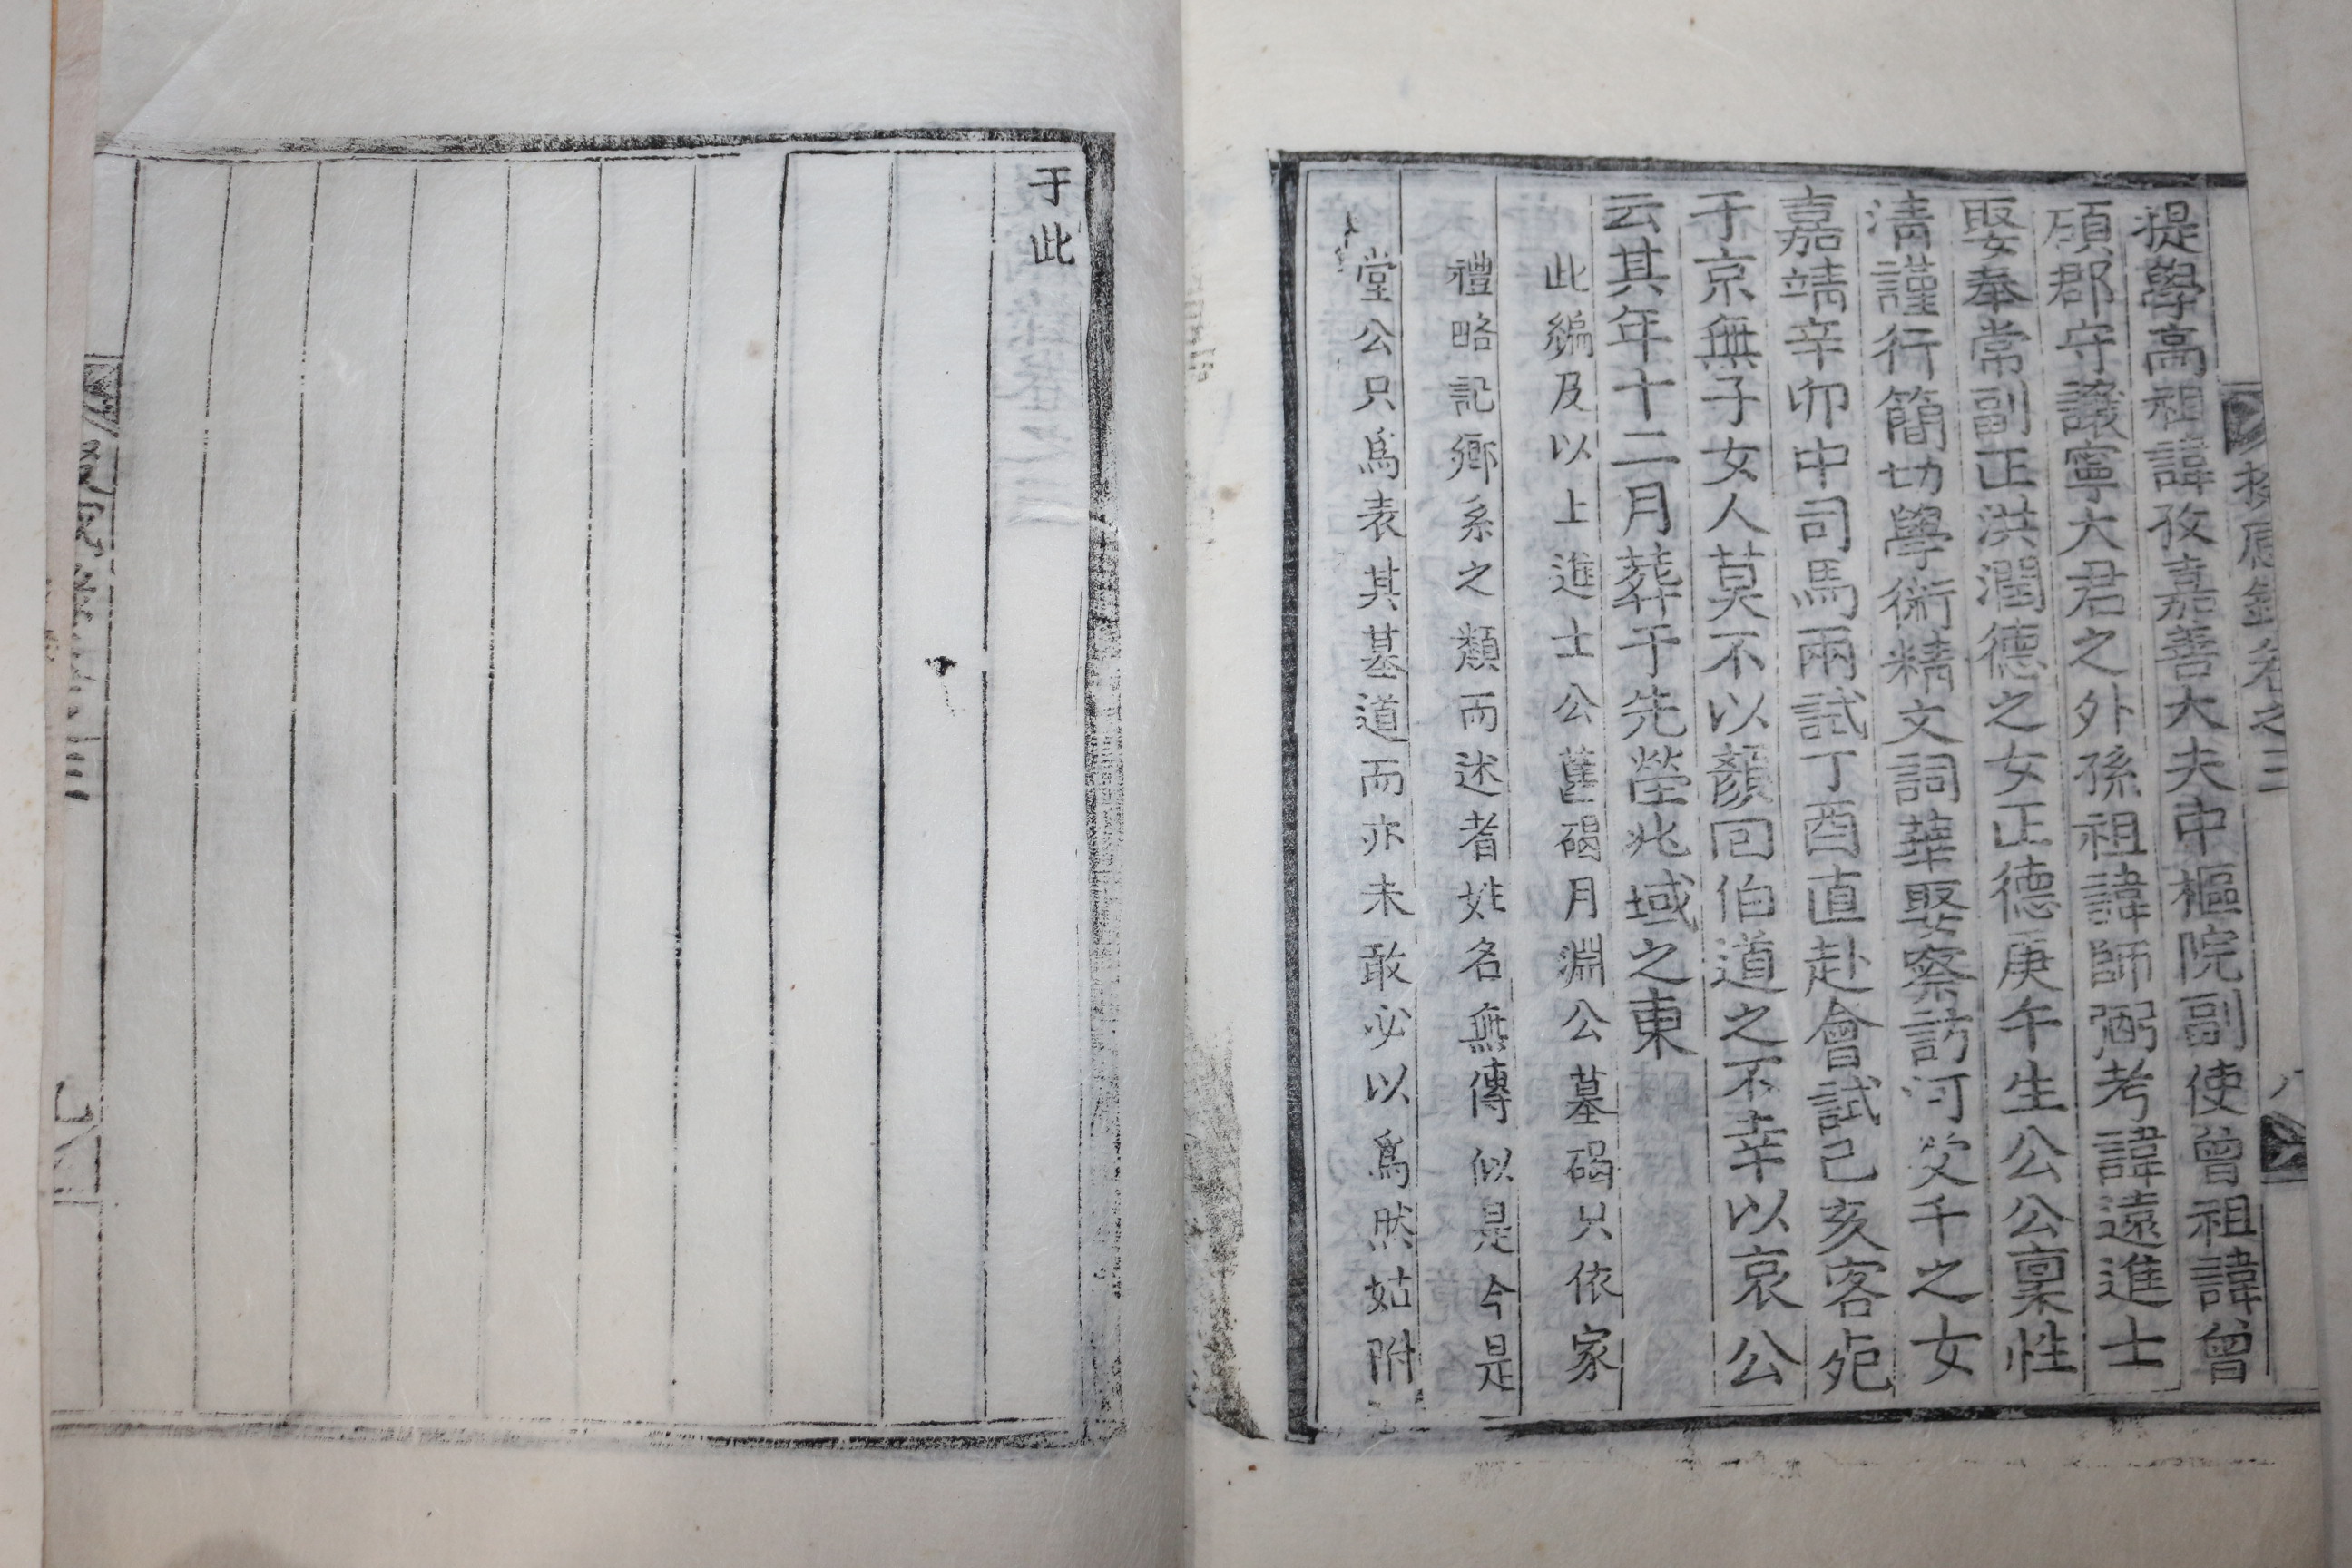 提學高祖諱孜嘉善大夫中樞院副使曾祖諱曾
碩郡守讓寧大君之外孫祖諱師弼考諱遠進士
娶奉常副正洪潤德之女正德庚午生公公稟性
淸謹行簡切學術精文詞華娶察訪河受千之女
嘉靖辛卯中司馬兩試丁酉直赴會試己亥客死
于京無子女人莫不以顔回伯道之不幸以哀公
云其年十二月葬于先塋兆域之東
此編及以上進士公舊碣月淵公墓碣只依家
禮略記鄕系之類而述者姓名無傳似是今是
堂公只爲表其墓道而亦未敢必以爲然姑附
于此
卷之三
八